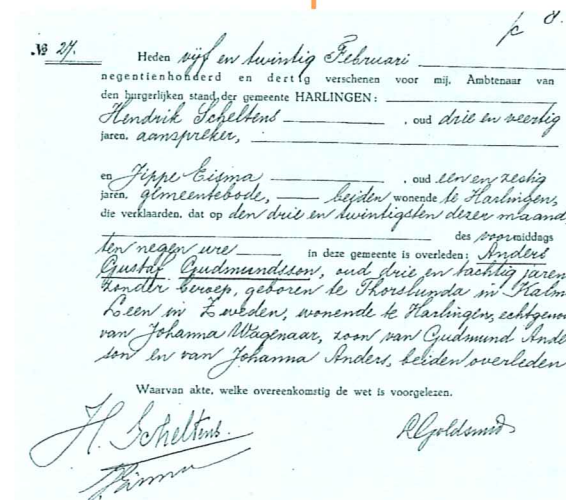 № 27.
Heden vijf en twintig Februari
negentienhonderd en dertig verschenen voor mij, Ambtenaar van
den burgerlijken stand der gemeente HARLINGEN:
Hendrik Scheltens , oud drie en veertig
jaren, aanspreker,
en Jippe Eisma , oud een en zestig
jaren, gemeentebode, beiden wonende te Harlingen,
die verklaarden, dat op den drie en twintigsten dezer maand,
des voormiddags
ten negen ure in deze gemeente is overleden: Anders
Gustaf Gudmundsson, oud drie en tachtig jaren
zonder beroep, geboren te Thorslunda in Kalm
Leen in Zweden, wonende te Harlingen, echtgeno
van Johanna Wagenaar, zoon van Gudmund Ande
son en van Johanna Anders, beiden overleden
Waarvan akte, welke overeenkomstig de wet is voorgelezen.
H. Scheltens.
RGoldsmid
JEisma